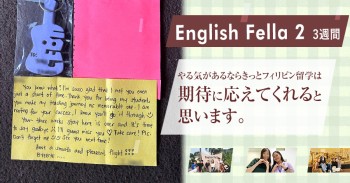 English Fella 2 3週間
やる気があるならきっとフィリピン留学は
期待に応えてくれると
思います。
You know what? I'm sooo glad that I met you even
just a short of time. Thank you for being my student,
you make my teaching journey so memorable one. I am
rooting for your success, I know you'll go through it
Your time really start here is over and it's time
to say goodbye. I'll gonna miss you Take care! Pls.
Don't forget me See you next time!
Have a smooth and pleasant flight